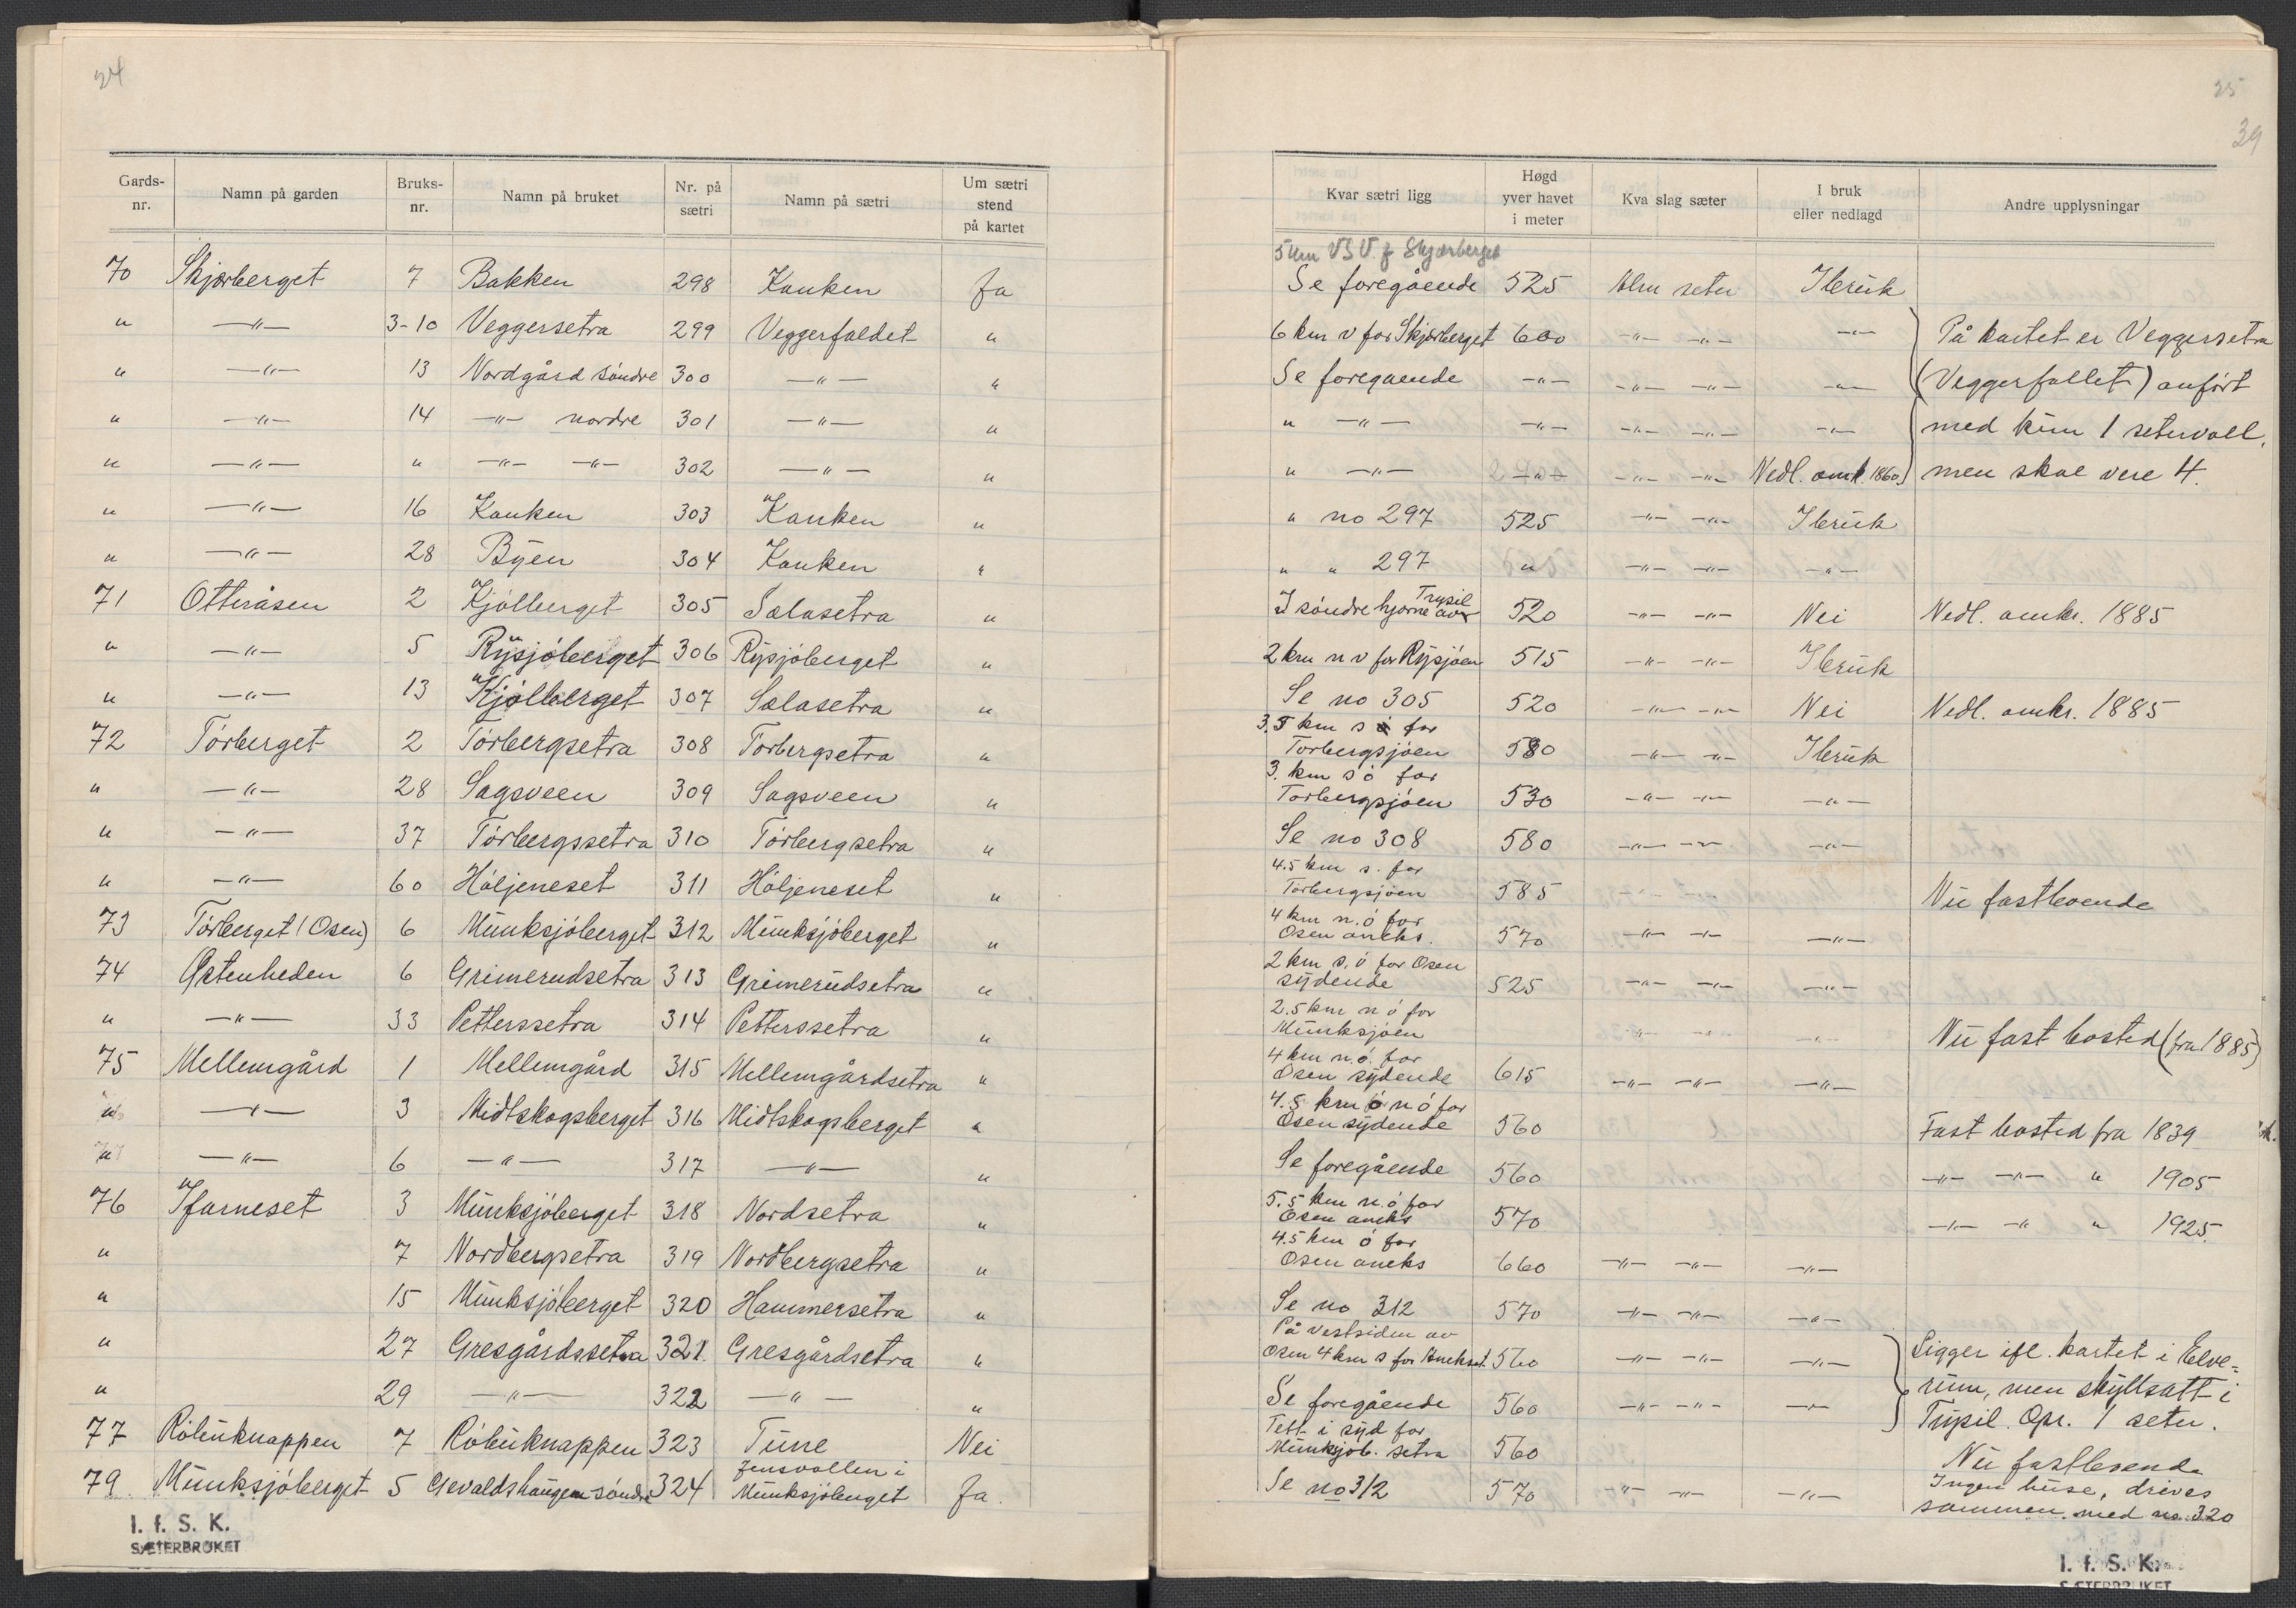 24
Gards-nr. Namn på garden Bruks-nr. Namn på bruket Nr. på sætri Namn på sætri Um sætri stend på kartet
70 Skjærberget 7 Bakken 298 Kanken Ja
" —"— 3-10 Veggersetra 299 Veggerfaldet "
" —"— 13 Nordgård söndre 300 —"— "
" —"— 14 —"— nordre 301 —"— "
" —"— " —"— —"— 302 —"— "
" —"— 16 Kanken 303 Kanken "
" —"— 28 Byen 304 Kanken "
71 Otteråsen 2 Kjölberget 305 Salasetra "
" —"— 5 Rysjöberget 306 Rysjöberget "
" —"— 13 Kjölberget 307 Salasetra "
72 Törberget 2 Törbergsetra 308 Törbergsetra "
" —"— 28 Sagsveen 309 Sagsveen "
" —"— 37 Törbergssetra 310 Törbergsetra "
" —"— 60 Höljeneset 311 Höljeneset "
73 Törberget (Osen) 6 Munksjöberget 312 Munksjöberget "
74 Østenheden 6 Grimerudsetra 313 Grimerudsetra "
" —"— 33 Petterssetra 314 Petterssetra "
75 Mellemgård 1 Mellemgård 315 Mellemgårdsetra "
" —"— 3 Midtskogsberget 316 Midtskogsberget "
" —"— 6 —"— 317 —"— "
76 Ifarneset 3 Munksjöberget 318 Nordsetra "
" 7 Nordbergsetra 319 Nordbergsetra "
" 15 Munksjöberget 320 Hammersetra "
" 27 Gresgårdssetra 321. Gresgårdsetra "
" 29 —"— 322 —"— "
77 Röbuknappen 7 Röbuknappen 323 Tune Nei
79. Munksjöberget 5 Gevaldshaugen söndre 324 Jensvollen i Munksjöberget Ja.
I. f. S. K.
SÆTERBRUKET
25
39
Kvar sætri ligg Høgd yver havet i meter Kva slag sæter I bruk eller nedlagd Andre upplysningar
5 km VSV. f Skjærberget
Se foregående 525 Alm seter I bruk
6 km v for Skjærberget 600 —"— —"— —"— På kartet er Veggersetra
Se foregaende —"— —"— —"— —"— (Veggerfallet) anfört
" —"— —"— —"— —"— —"— med kun 1 setervoll,
" —"— —"— —"— —"— Nedl. omk. 1860 men skal vere 4.
" no 297 525 —"— —"— I bruk
" " 297 " —"— —"— —"—
I söndre hjorne av Trysil 520 —"— —"— Nei Nedl. omkr. 1885
2 km n v for Rysjöen 515 —"— —"— I bruk
Se no 305 520 —"— —"— Nei Nedl. omkr. 1885
3.5 km s for
Torbergsjöen 580 —"— —"— I bruk
3. km s ö for
Torbergsjöen 530 —"— —"— —"—
Se no 308 580 —"— —"— —"—
4.5 km s. for
Törbergsjöen 585 —"— —"— Nu fastboende
4 km n. ö for
Osen aneks. 570 —"— —"— —"—
2 km s. ö for Osen
sydende 525 —"— —"— —"—
2.5 km n ö for
Munksjöen " " " Nu fast bosted (fra 1885)
4 km n. ö. for
Osen sydende 615 —"— —"— —"—
4.5 km ö n ö for
Osen sydende 560 Fast bosted fra 1839
Se foregående 560 —"— —"— " 1905
5.5 km n. ö for
Osen aneks 570 —"— —"— " 1925.
4.5 km ö for
Osen aneks 660 —"— —"— —"—
Se no 312 570 —"— —"— —"—
På vestsiden av
Osen 4 km s for Anekset 560 —"— —"— —"— Ligger ifl. kartet i Elve=
Se foregående 560 —"— —"— —"— rum, men skyllsatt i
Trysil. Opr. 1 seter.
Tett i syd for
Munksjöb. setra 560 Nu fastboende
Se no 312 570 —"— —"— —"— Ingen huse, drives
sammen med no. 320
I. f. S. K.
SÆTERBRUKET